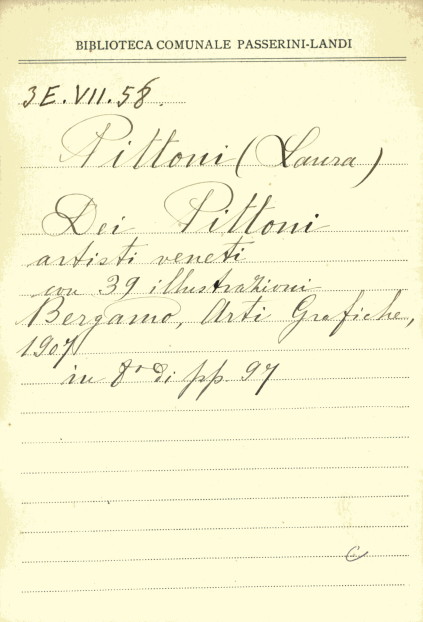 BIBLIOTECA COMUNALE PASSERINI-LANDI
3E.VII.58.
Pittoni (Laura)
Dei Pittoni
artisti veneti
con 39 illustrazioni
Bergamo, Arti Grafiche,
1907
in 8° di pp. 97
C